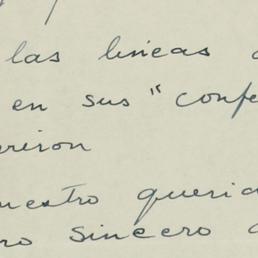 las lineas
en sus "confe
nuestro querid
ro sincero